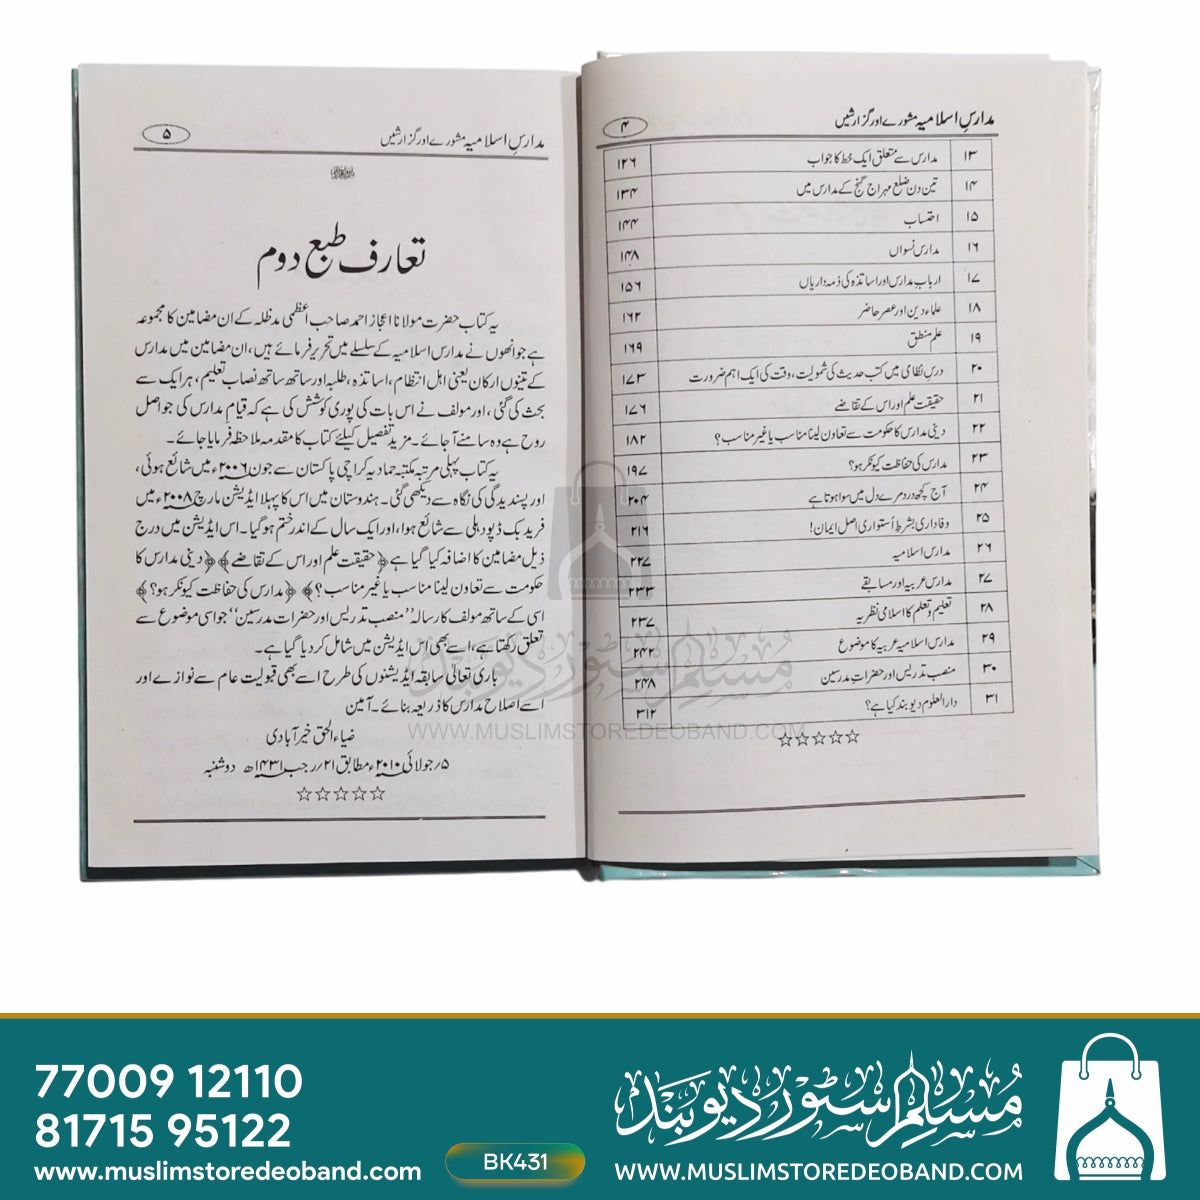 مدارسِ اسلامیہ مشورے اور گزارشیں
۴
۱۳ مدارس سے متعلق ایک خط کا جواب ۱۲۶
۱۴ تین دن ضلع مہراج گنج کے مدارس میں ۱۳۴
۱۵ احتساب ۱۴۴
۱۶ مدارس نسواں ۱۴۸
۱۷ ارباب مدارس اور اساتذہ کی ذمہ داریاں ۱۵۶
۱۸ علماء دین اور عصر حاضر ۱۶۲
۱۹ علم منطق ۱۶۹
۲۰ درسِ نظامی میں کتب حدیث کی شمولیت، وقت کی ایک اہم ضرورت ۱۷۳
۲۱ حقیقت علم اور اس کے تقاضے ۱۷۶
۲۲ دینی مدارس کا حکومت سے تعاون لینا مناسب یا غیر مناسب؟ ۱۸۲
۲۳ مدارس کی حفاظت کیونکر ہو؟ ۱۹۷
۲۴ آج کچھ درد مرے دل میں سوا ہوتا ہے ۲۰۴
۲۵ وفاداری بشرطِ اُستواری اصل ایمان! ۲۱۶
۲۶ مدارس اسلامیہ ۲۲۷
۲۷ مدارس عربیہ اور مسابقے ۲۳۳
۲۸ تعلیم و تعلم کا اسلامی نظریہ ۲۳۷
۲۹ مدارس اسلامیہ عربیہ کا موضوع ۲۴۲
۳۰ منصب تدریس اور حضراتِ مدرسین ۲۴۸
۳۱ دارالعلوم دیوبند کیا ہے؟ ۳۱۲
☆☆☆☆☆
مدارسِ اسلامیہ مشورے اور گزارشیں
۵
تعارف طبع دوم
یہ کتاب حضرت مولانا اعجاز احمد صاحب اعظمی مدظلہ کے ان مضامین کا مجموعہ
ہے جو انھوں نے مدارس اسلامیہ کے سلسلے میں تحریر فرمائے ہیں، ان مضامین میں مدارس
کے تینوں ارکان یعنی اہل انتظام، اساتذہ، طلبہ اور ساتھ ساتھ نصاب تعلیم، ہر ایک سے
بحث کی گئی، اور مولف نے اس بات کی پوری کوشش کی ہے کہ قیام مدارس کی جو اصل
روح ہے وہ سامنے آ جائے۔ مزید تفصیل کیلئے کتاب کا مقدمہ ملاحظہ فرمایا جائے۔
یہ کتاب پہلی مرتبہ مکتبہ حمادیہ کراچی پاکستان سے جون ۲۰۰۶ء میں شائع ہوئی،
اور پسندیدگی کی نگاہ سے دیکھی گئی۔ ہندوستان میں اس کا پہلا ایڈیشن مارچ ۲۰۰۸ء میں
فرید بک ڈپو دہلی سے شائع ہوا، اور ایک سال کے اندر ختم ہو گیا۔ اس ایڈیشن میں درج
ذیل مضامین کا اضافہ کیا گیا ہے ﴿حقیقت علم اور اس کے تقاضے﴾ ﴿دینی مدارس کا
حکومت سے تعاون لینا مناسب یا غیر مناسب؟﴾ ﴿مدارس کی حفاظت کیونکر ہو؟﴾
اسی کے ساتھ مولف کا رسالہ ''منصب تدریس اور حضرات مدرسین'' جو اسی موضوع سے
تعلق رکھتا ہے، اسے بھی اس ایڈیشن میں شامل کر دیا گیا ہے۔
باری تعالیٰ سابقہ ایڈیشنوں کی طرح اسے بھی قبولیت عام سے نوازے اور
اسے اصلاح مدارس کا ذریعہ بنائے۔ آمین
ضیاء الحق خیر آبادی
۵/ جولائی ۲۰۱۰ء مطابق ۲۱/ رجب ۱۴۳۱ھ دوشنبہ
☆☆☆☆☆
مسلم سٹور دیوبند
WWW.MUSLIMSTOREDEOBAND.COM
77009 12110
81715 95122
www.muslimstoredeoband.com
BK431
مسلم سٹور دیوبند
WWW.MUSLIMSTOREDEOBAND.COM